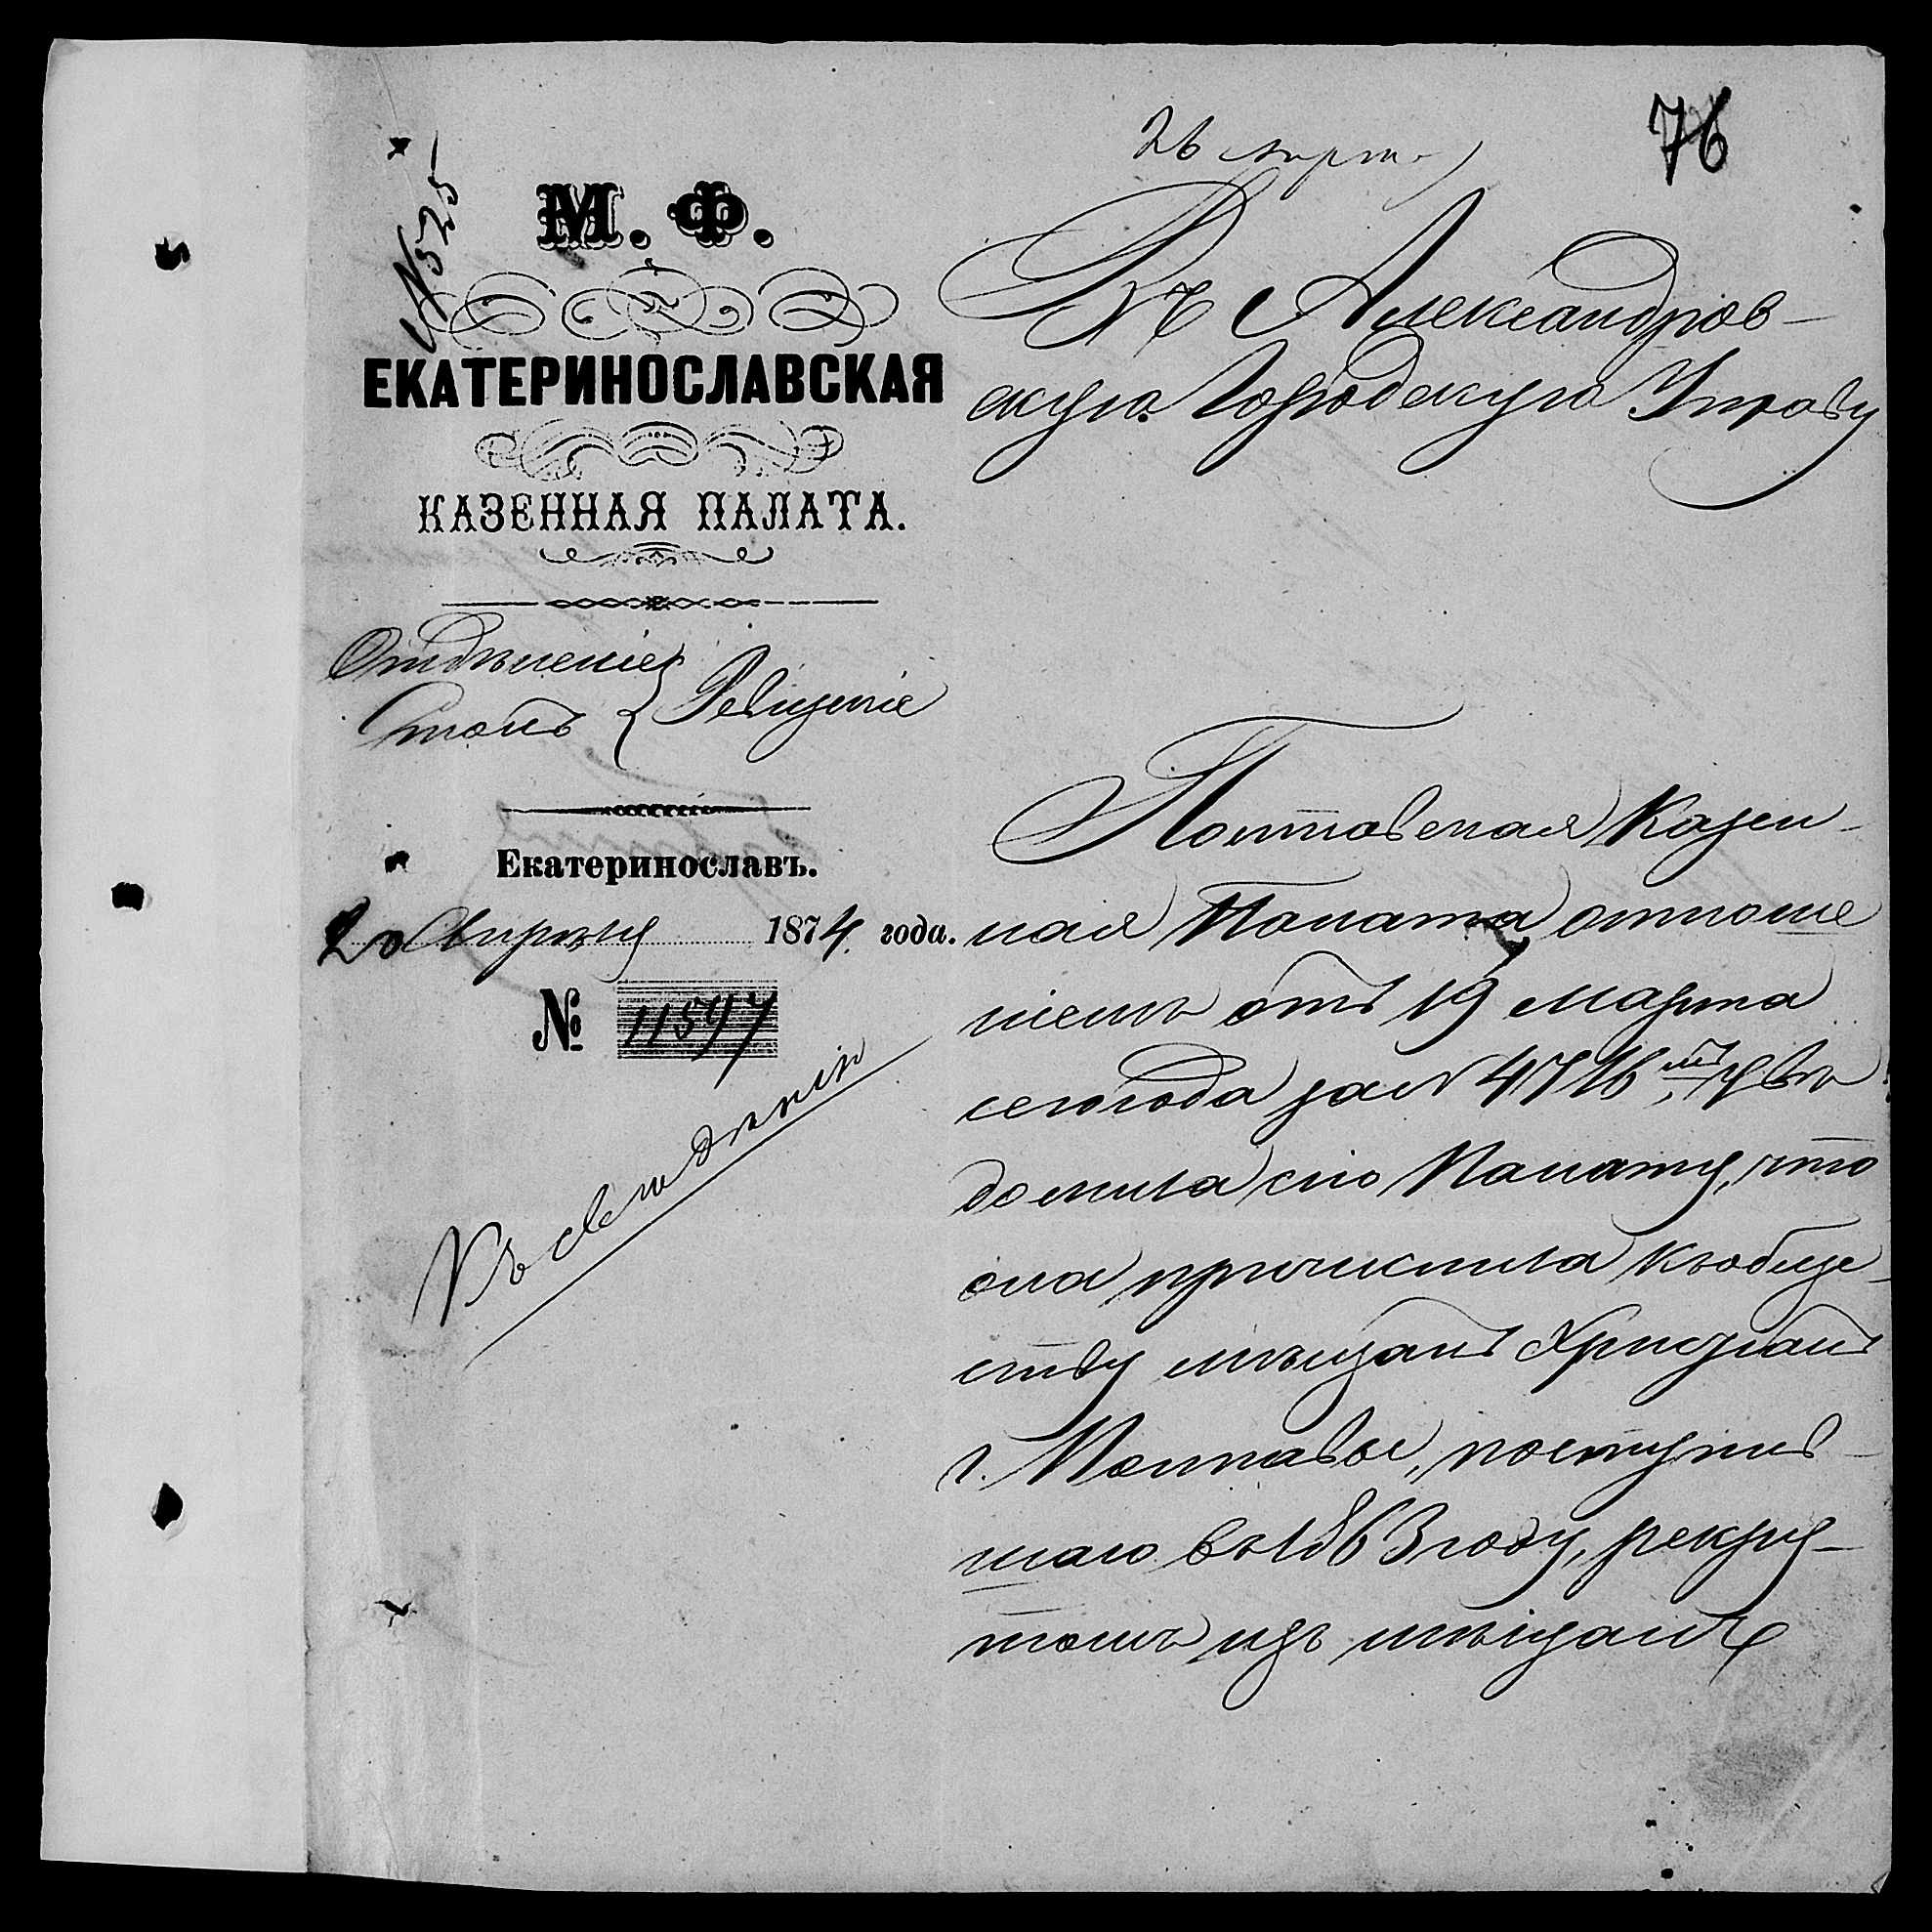 76
№ 525
М. Ф.
ЕКАТЕРИНОСЛАВСКАЯ
КАЗЕННАЯ ПАЛАТА.
Отдѣленіе
Столъ
Екатеринославъ.
20 Апрѣля 1874 года.
№ 11597
Къ свѣдѣнію
Въ Александров-
скую Городскую Управу
Полтавская Казен-
ная Палата отноше
ніемъ отъ 19 Марта
сего года за № 4716 увѣ
домила сію Палату, что
она причислила къ обще-
ству мѣщанъ Христіанъ
г. Полтавы, поступив-
шаго въ 1863 году, рекру-
томъ изъ мѣщанъ